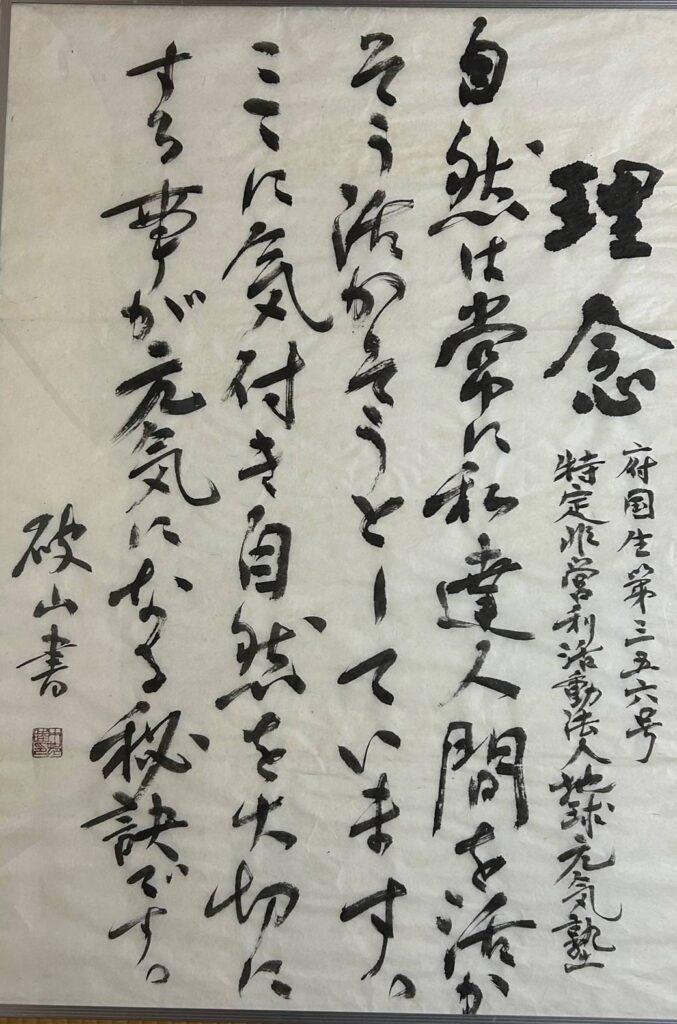 理念
府国生第三五六号
特定非営利活動法人地球元気塾
自然は常に私達人間を活か
そう活かそうとしています。
ここに気付き自然を大切に
する事が元気になる秘訣です。
破山書